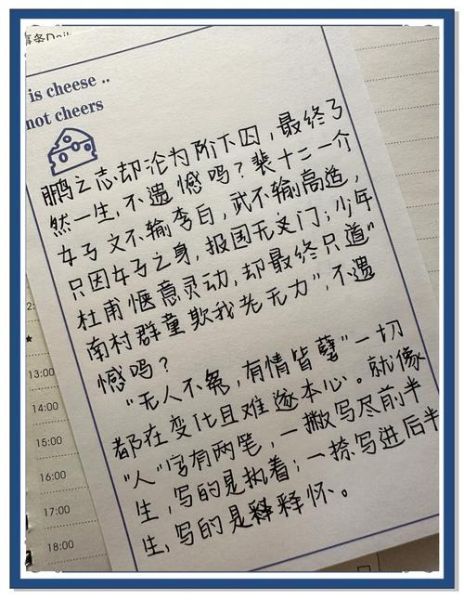 is cheese ..
not cheers
鹏之志却沦为阶下囚，最终了
然一生，不遗憾吗？裴十二一介
女子文不输李白，武不输高适，
只因女子之身，报国无门；少年
杜甫惬意灵动，却最终只道"
南村群童欺我老无力"，不遗
憾吗？
"无人不冤，有情皆孽"一切
都在变化且难遂本心。就像
"人"字有两笔，一撇写尽前半
生，写的是执着；一捺写进后半
生，写的是释怀。
13:00
14:00
15:00
16:00
17:00
18:00